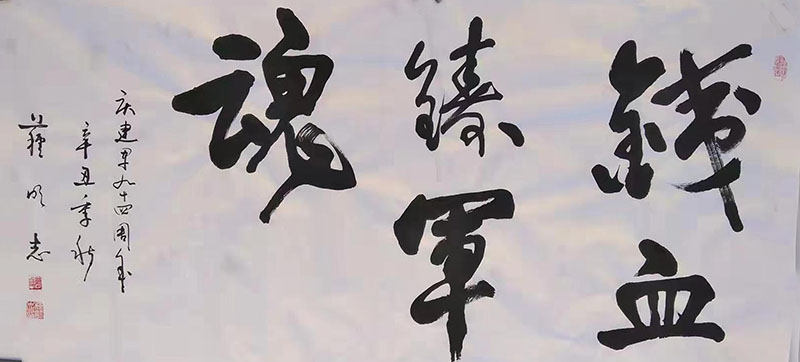 鐵血
鑄軍
魂
庆建军九十四周年
辛丑季秋
明志